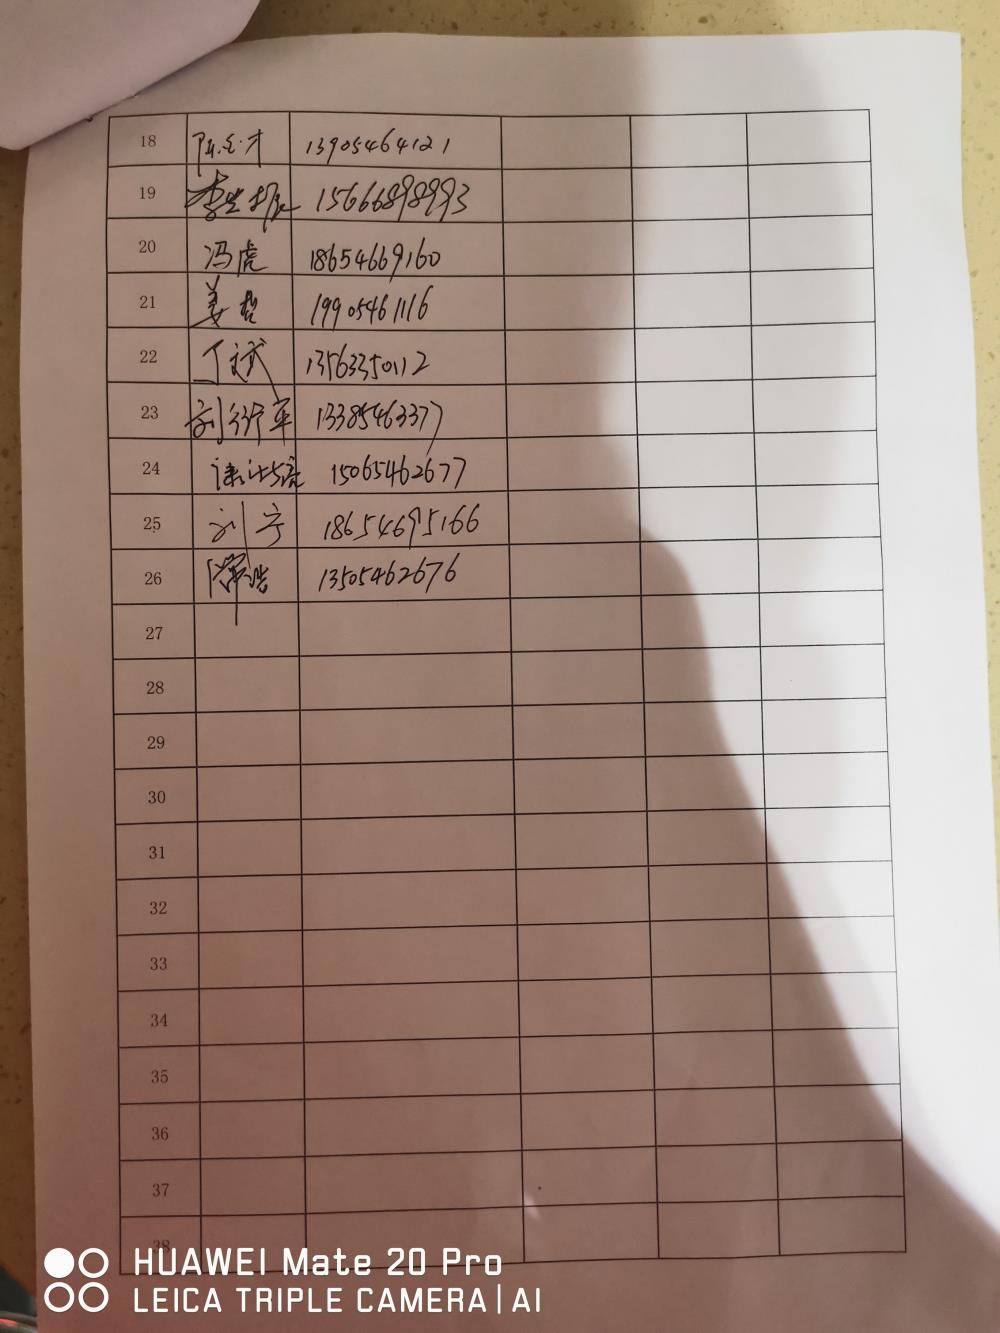 18 13905464121
19 15666898993
20 冯虎 18654669160
21 姜哲 19905461116
22 丁文斌 13563350112
23 刘衍军 13385463377
24 15065462677
25 刘宁 18654695166
26 13505462676
27
28
29
30
31
32
33
34
35
36
37
38
HUAWEI Mate 20 Pro
LEICA TRIPLE CAMERA | AI